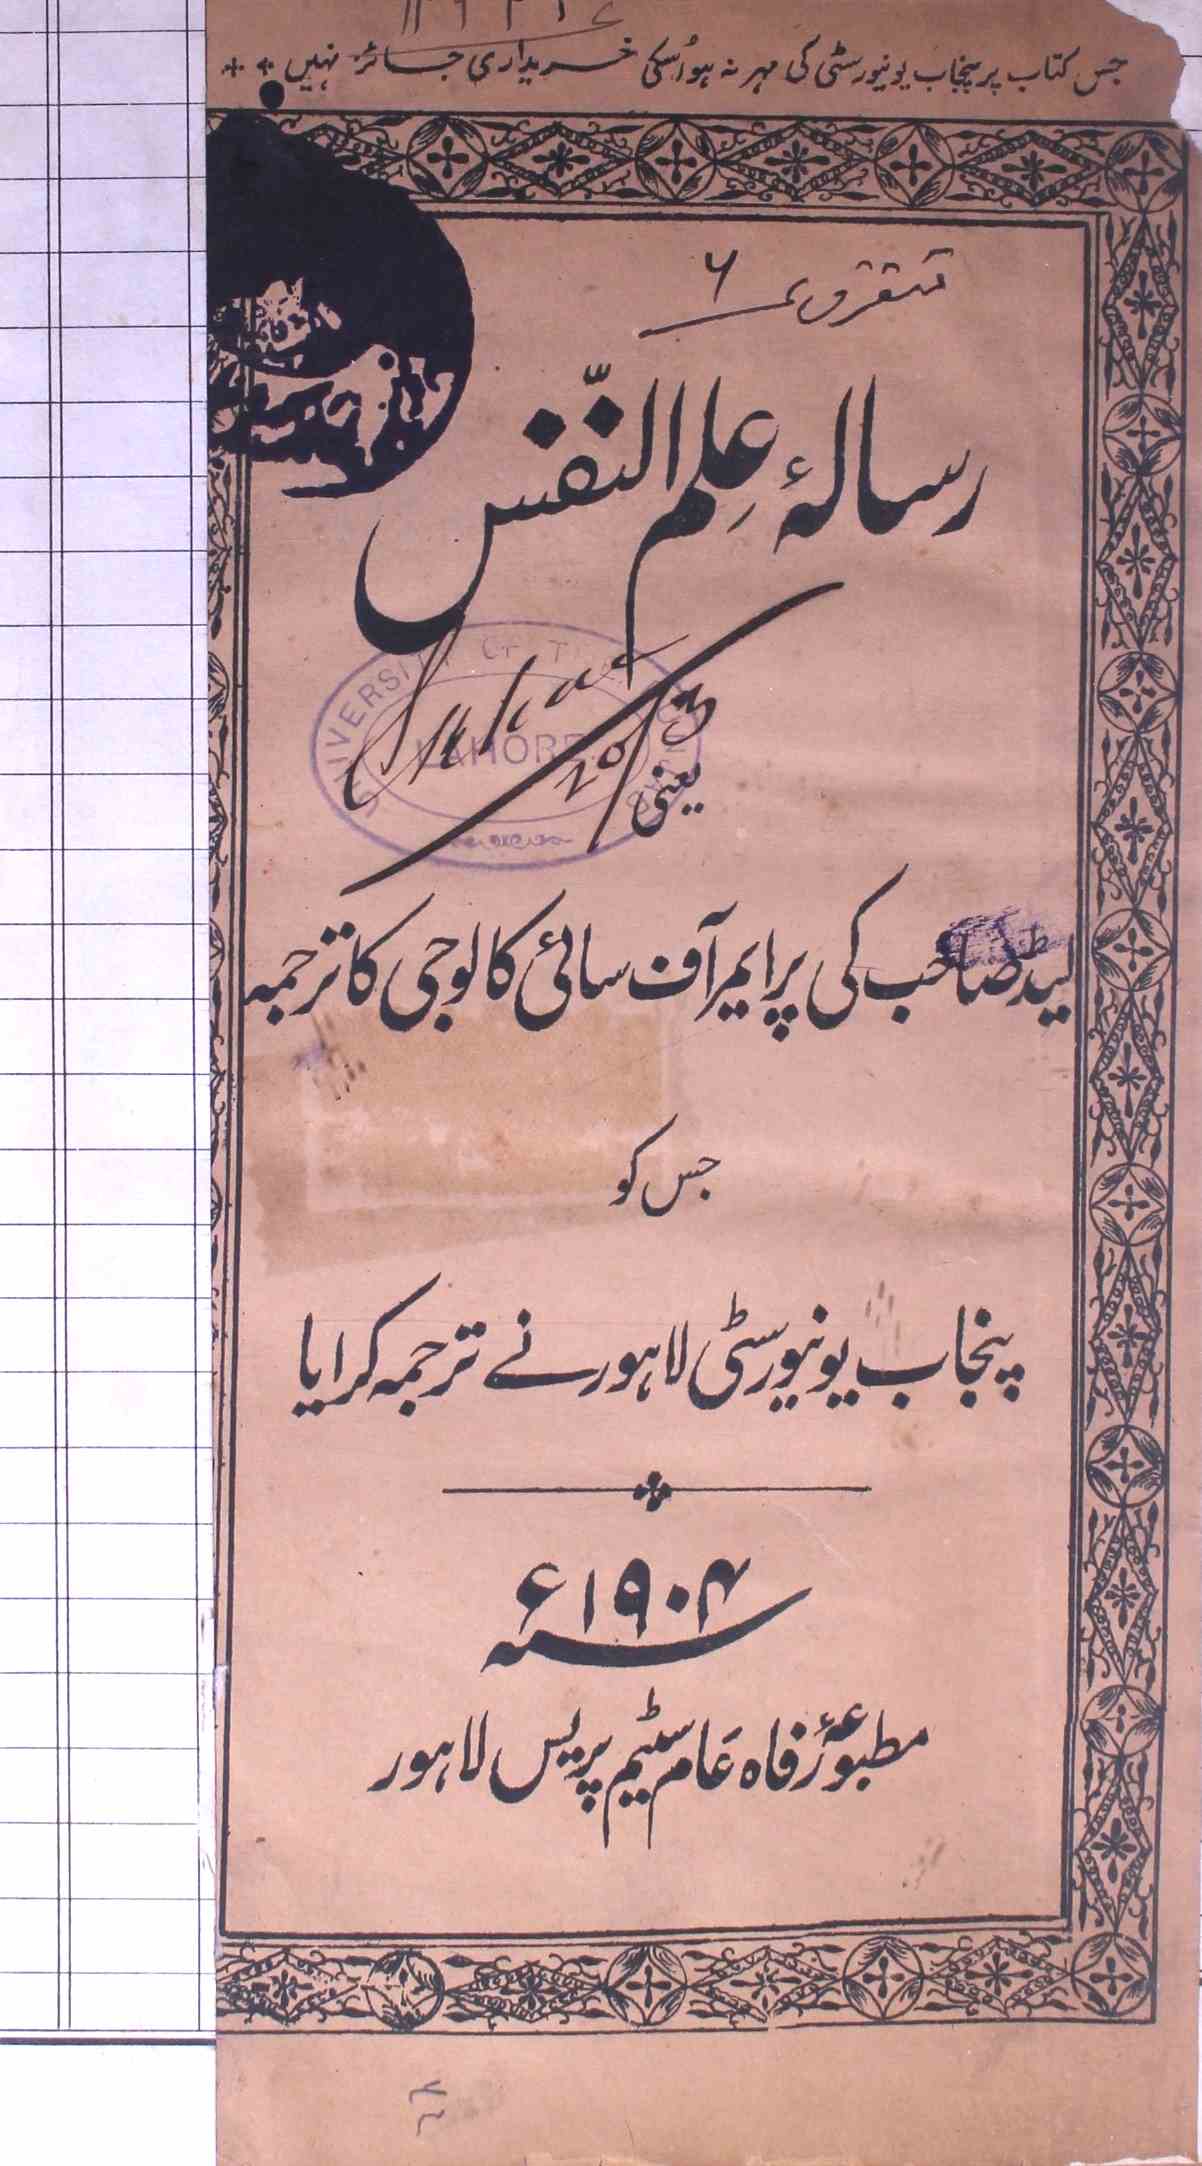 جس کتاب پر پنجاب یونیورسٹی کی مہر نہ ہو اُسکی خریداری جائز نہیں
متفرق ۶
رسالۂ عِلم النّفس
UNIVERSITY OF THE
LAHORE
یعنی
لیڈ صاحب کی پرایمر آف سائی کالوجی کا ترجمہ
جس کو
پنجاب یونیورسٹی لاہور نے ترجمہ کرایا
سنہ ۱۹۰۴ء
مطبوعۂ رفاہ عام سٹیم پریس لاہور